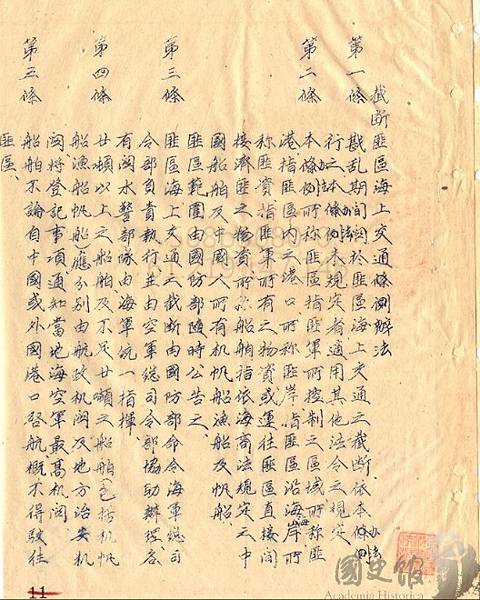 截断匪區海上交通條例辦法
第一條 戡乱期间関於匪區海上交通之截断依本條例办法
行之本條例办法未規定者適用其他法令之規定
第二條 本條例办法所称匪區指匪軍所控制之區域所称匪
港指匪區内之港口所称匪岸指匪區沿海海岸所
称匪資指匪軍所有之物資或運往匪區直接间
接濟匪之物資所称船舶指依海商法規定之中
國船舶及中國人所有机帆船漁船及帆船
匪區範圍由國防部隨時公告之
第三條 匪區海上交通之截断由國防部命令海軍總司
令部負責執行並由空軍總司令部協助辦理各
有関水警部隊由海軍統一指揮
第四條 廿噸以上之船舶及不足廿噸之船舶(包括机帆
船漁船帆船)應分别由航政机関及地方治安机
関將登記事項通知當地海空軍最高机関
第五條 船舶不論自中國或外國港口啓航概不得駛往
匪區
11
國史館
Academia Historica